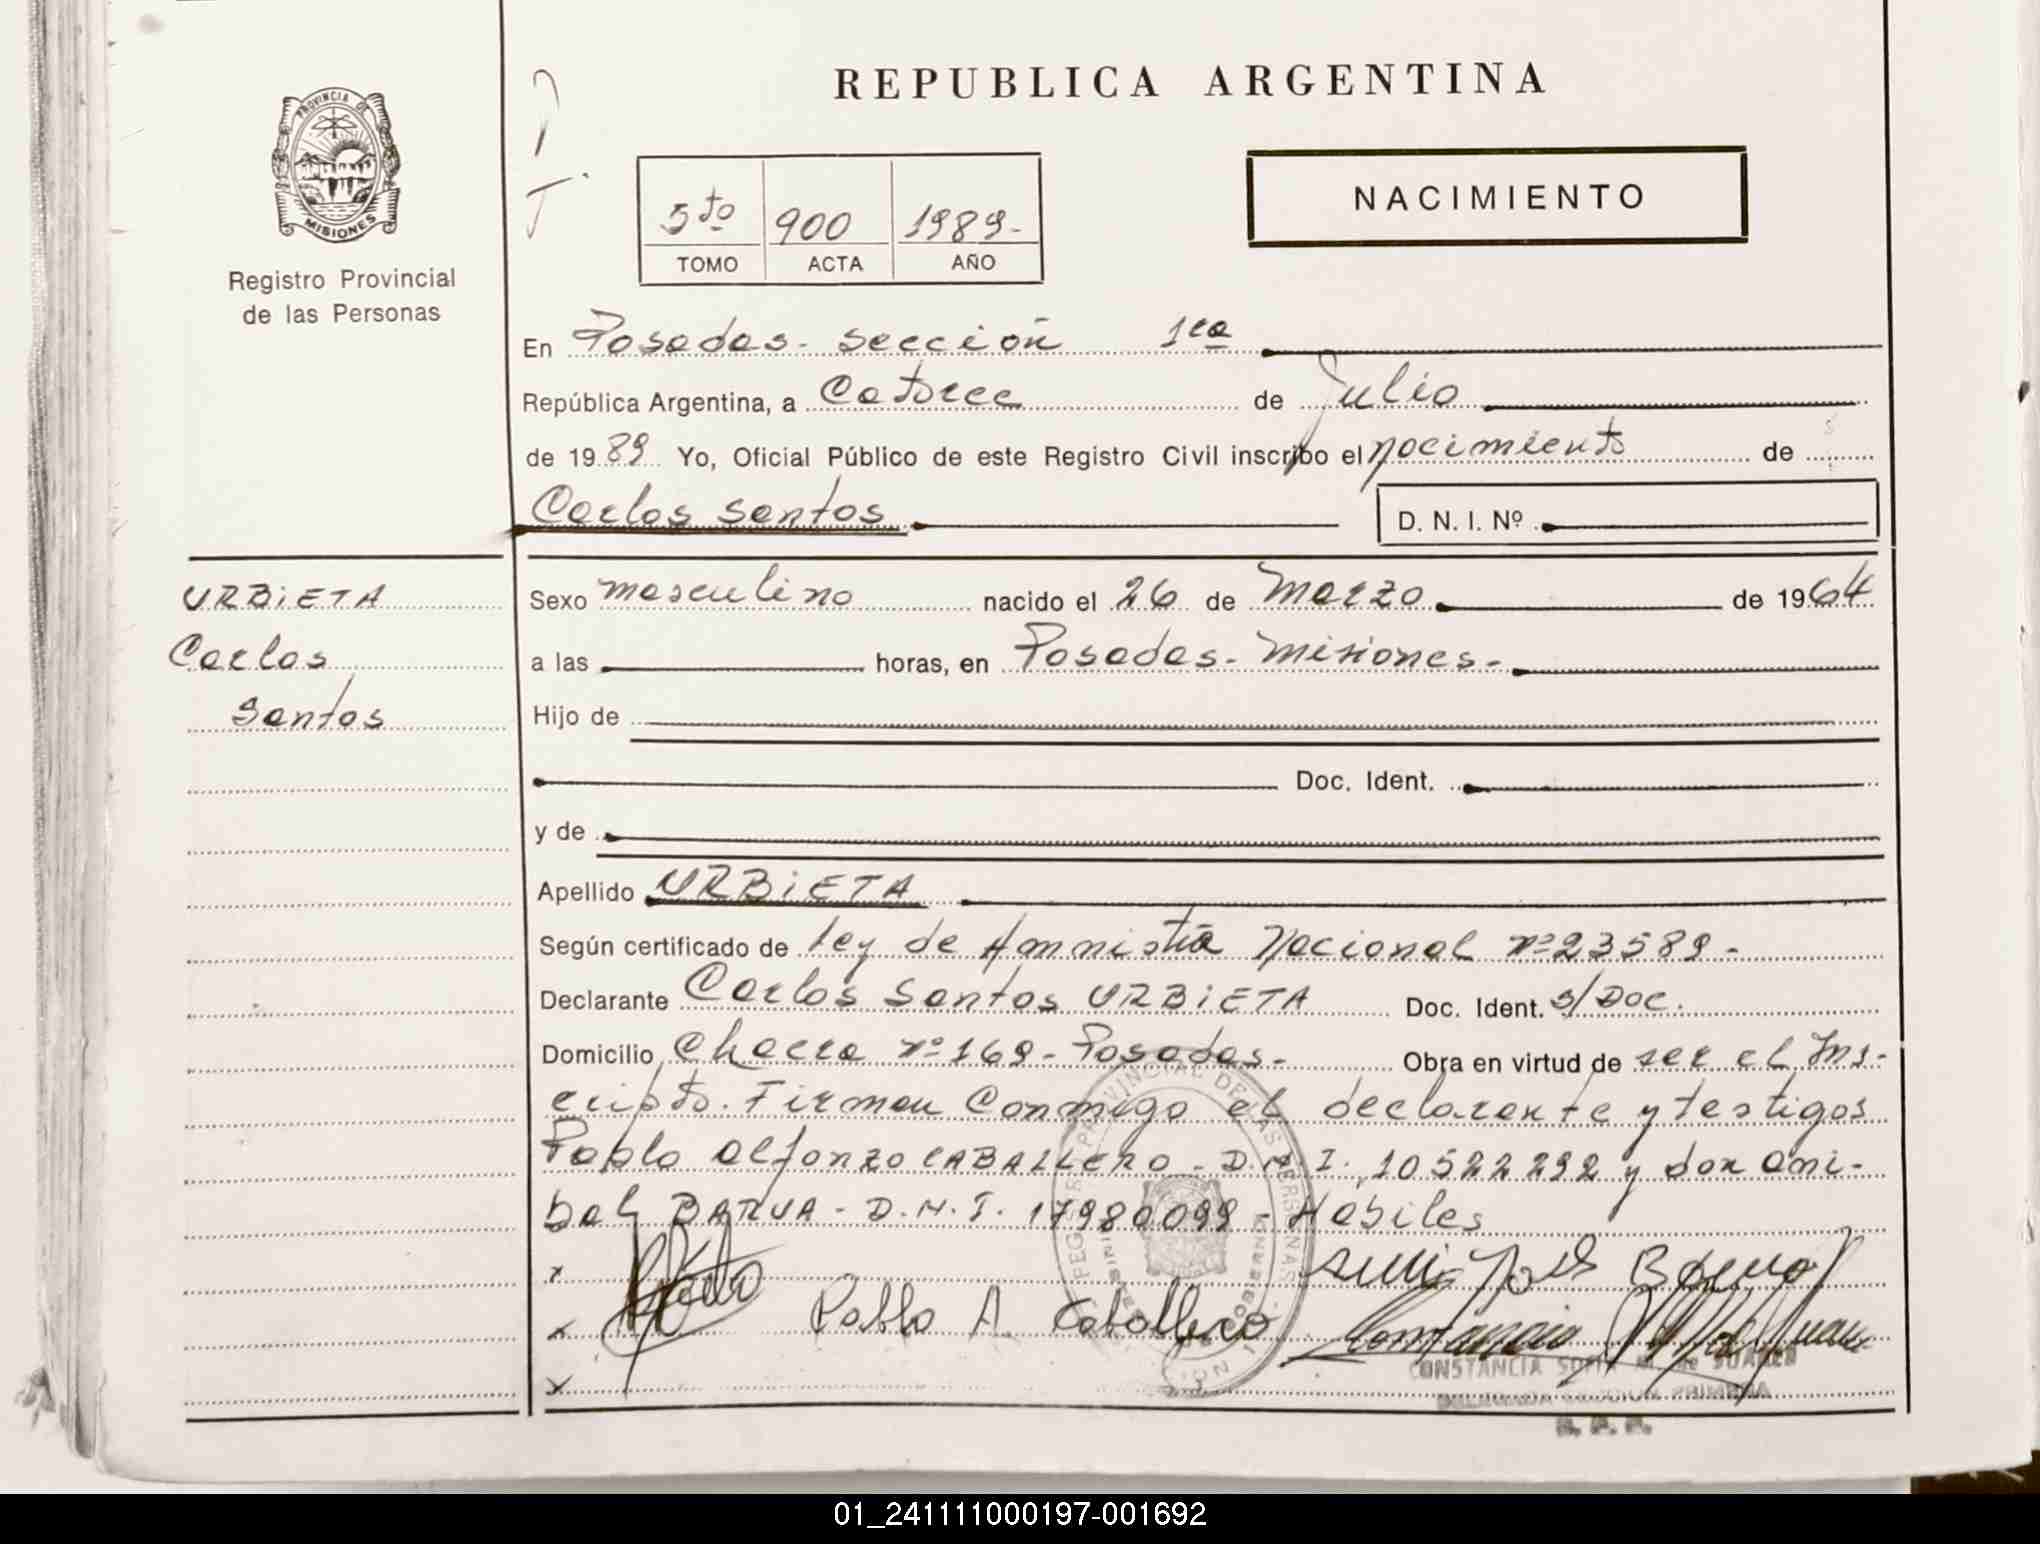 REPUBLICA ARGENTINA
PROVINCIA DE
MISIONES
Registro Provincial
de las Personas
NACIMIENTO
5to 900 1989-
TOMO ACTA AÑO
En Posadas- sección 1ra
República Argentina, a Catorce de Julio
de 1989 Yo, Oficial Público de este Registro Civil inscribo el nacimiento de
Carlos Santos D. N. I. Nº
URBIETA
Carlos
Santos
Sexo masculino nacido el 26 de Marzo de 1964
a las horas, en Posadas- Misiones-
Hijo de
Doc. Ident.
y de
Apellido URBIETA
Según certificado de Ley de Amnistia Nacional nº23589-
Declarante Carlos Santos URBIETA Doc. Ident. s/Doc.
Domicilio Chacra nº 169- Posadas- Obra en virtud de ser el Ins-
cripto. Firman Conmigo el declarante y testigos
Pablo Alfonzo CABALLERO - D.N.I. 10522292 y don Ani-
bal BARUA - D.N.I. 17980099 - Habiles
Pablo A. Caballero
CONSTANCIA de SUAREZ
DELEGADA SECCION PRIMERA
01_241111000197-001692